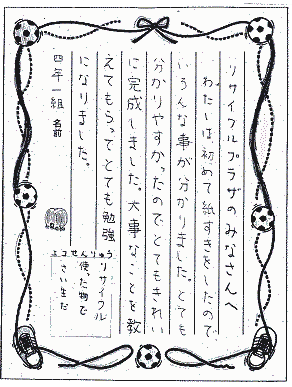 リサイクルプラザのみなさんへ
わたしは初めて紙すきをしたので
いろんな事が分かりました。とても
分かりやすかったのでとてもきれい
に完成しました。大事なことを教
えてもらってとても勉強
になりました。
四年一組 名前
エコせんりゅう
リサイクル
使った物で
さい生だ